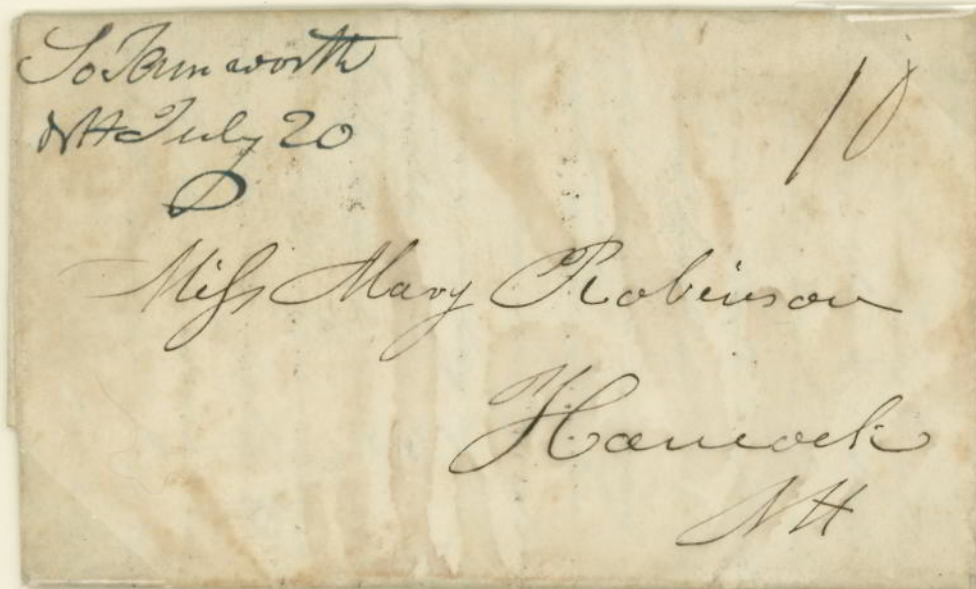 So Tamworth
NH July 20
10
Miſs Mary Robinson
Hancock
NH